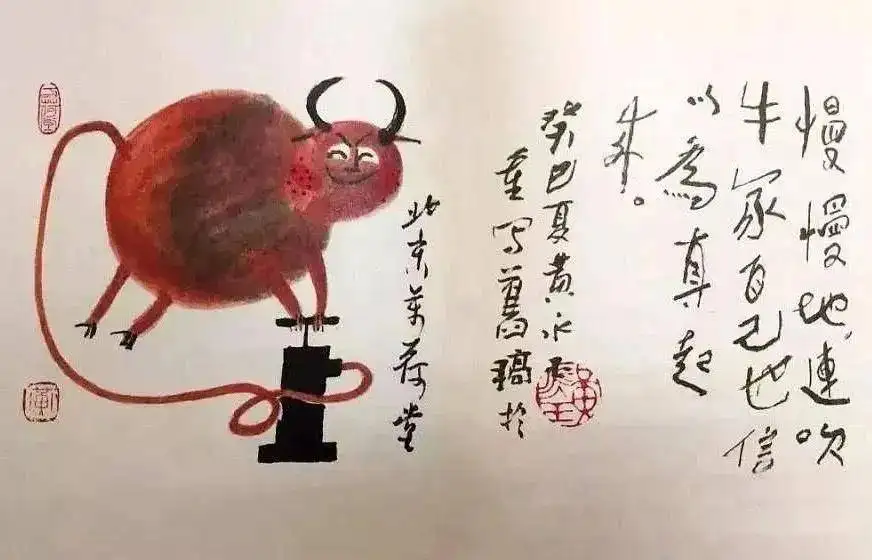 慢慢地,連吹
牛家自己也信
以為真起
来。
癸巳夏黄永玉
重写舊稿於
北京萬荷堂